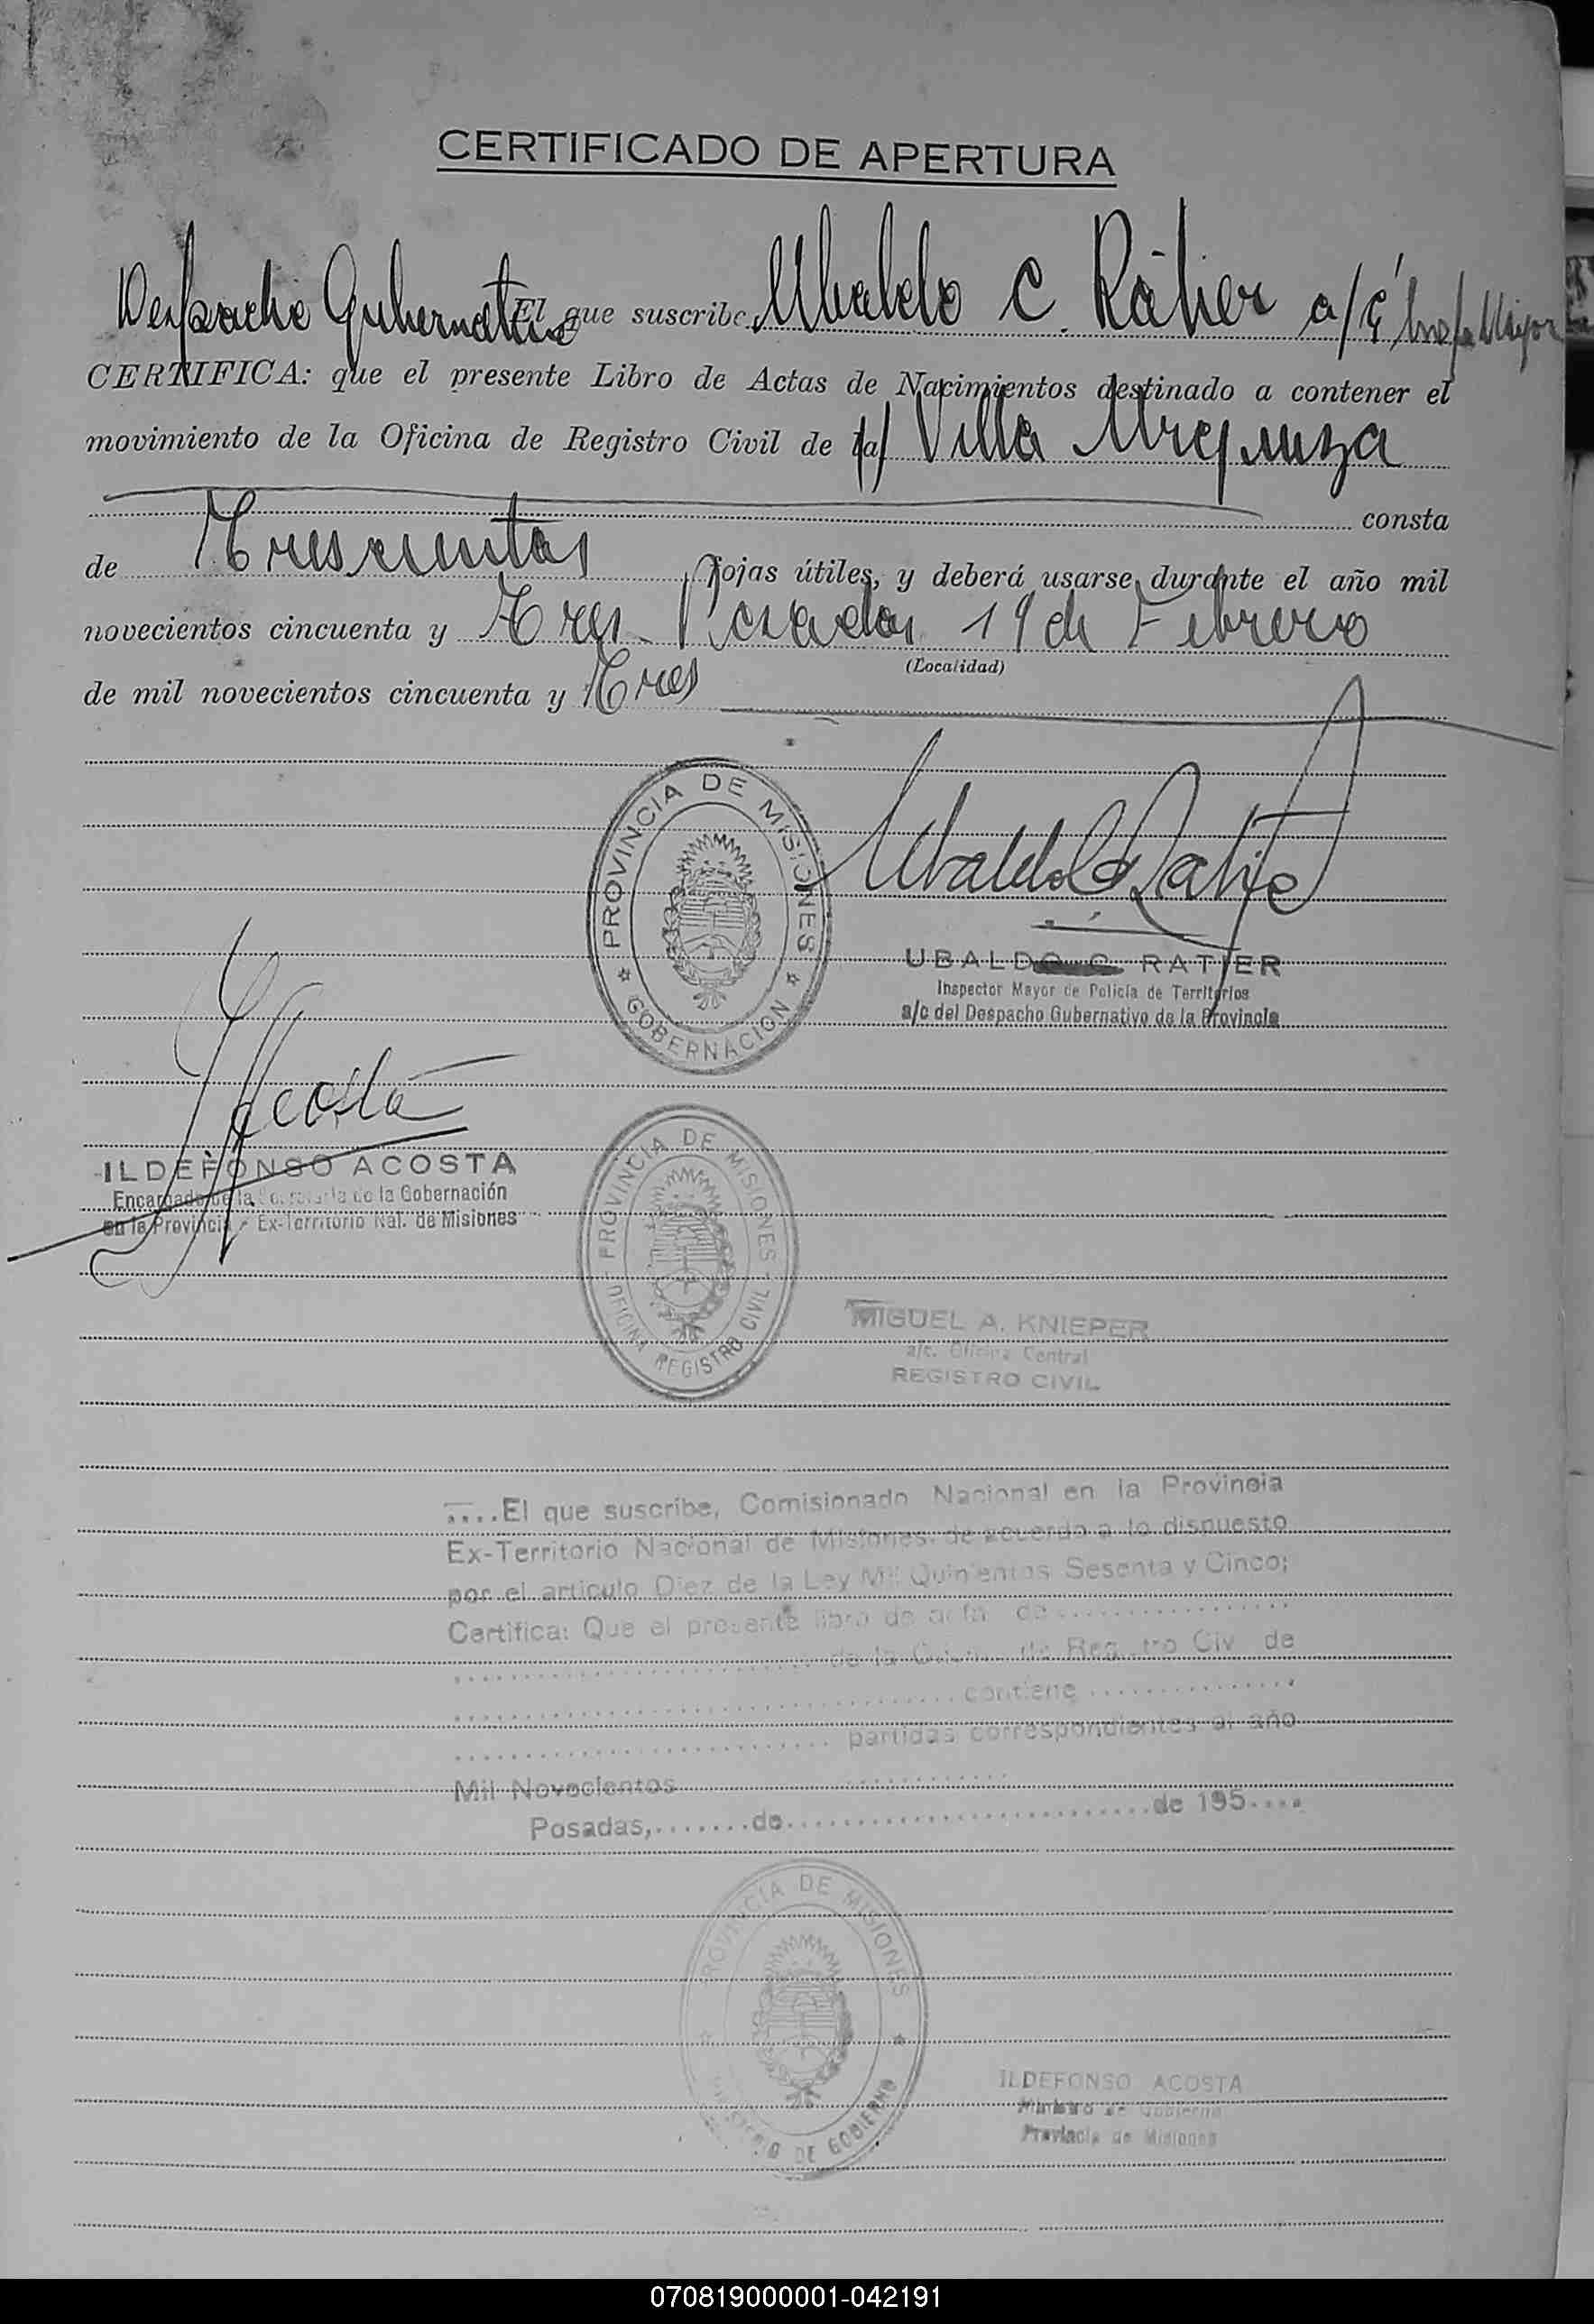 CERTIFICADO DE APERTURA
Despacho Gubernativo El que suscribe, Ubaldo C. Ratier a/c Insp Mayor
CERTIFICA: que el presente Libro de Actas de Nacimientos destinado a contener el
movimiento de la Oficina de Registro Civil de la Villa Urquiza
consta
de Trescientas fojas útiles, y deberá usarse durante el año mil
novecientos cincuenta y Tres. Posadas 19 de Febrero
(Localidad)
de mil novecientos cincuenta y Tres
PROVINCIA DE MISIONES
GOBERNACION
Ubaldo C Ratier
UBALDO C. RATIER
Inspector Mayor de Policía de Territorios
a/c del Despacho Gubernativo de la Provincia
Acosta
ILDEFONSO ACOSTA
Encargado de la Secretaría de la Gobernación
en la Provincia - Ex-Territorio Nal. de Misiones
PROVINCIA DE MISIONES
OFICINA REGISTRO CIVIL
MIGUEL A. KNIEPER
a/c. Oficina Central
REGISTRO CIVIL
....El que suscribe, Comisionado Nacional en la Provincia
Ex-Territorio Nacional de Misiones, de acuerdo a lo dispuesto
por el artículo Diez de la Ley Mil Quinientos Sesenta y Cinco;
Certifica: Que el presente libro de acta de
de la Oficina de Registro Civ de
contiene
partidas correspondientes al año
Mil Novecientos
Posadas,.......de..............................de 195....
PROVINCIA DE MISIONES
MINISTERIO DE GOBIERNO
ILDEFONSO ACOSTA
Ministro de Gobierno
Provincia de Misiones
070819000001-042191